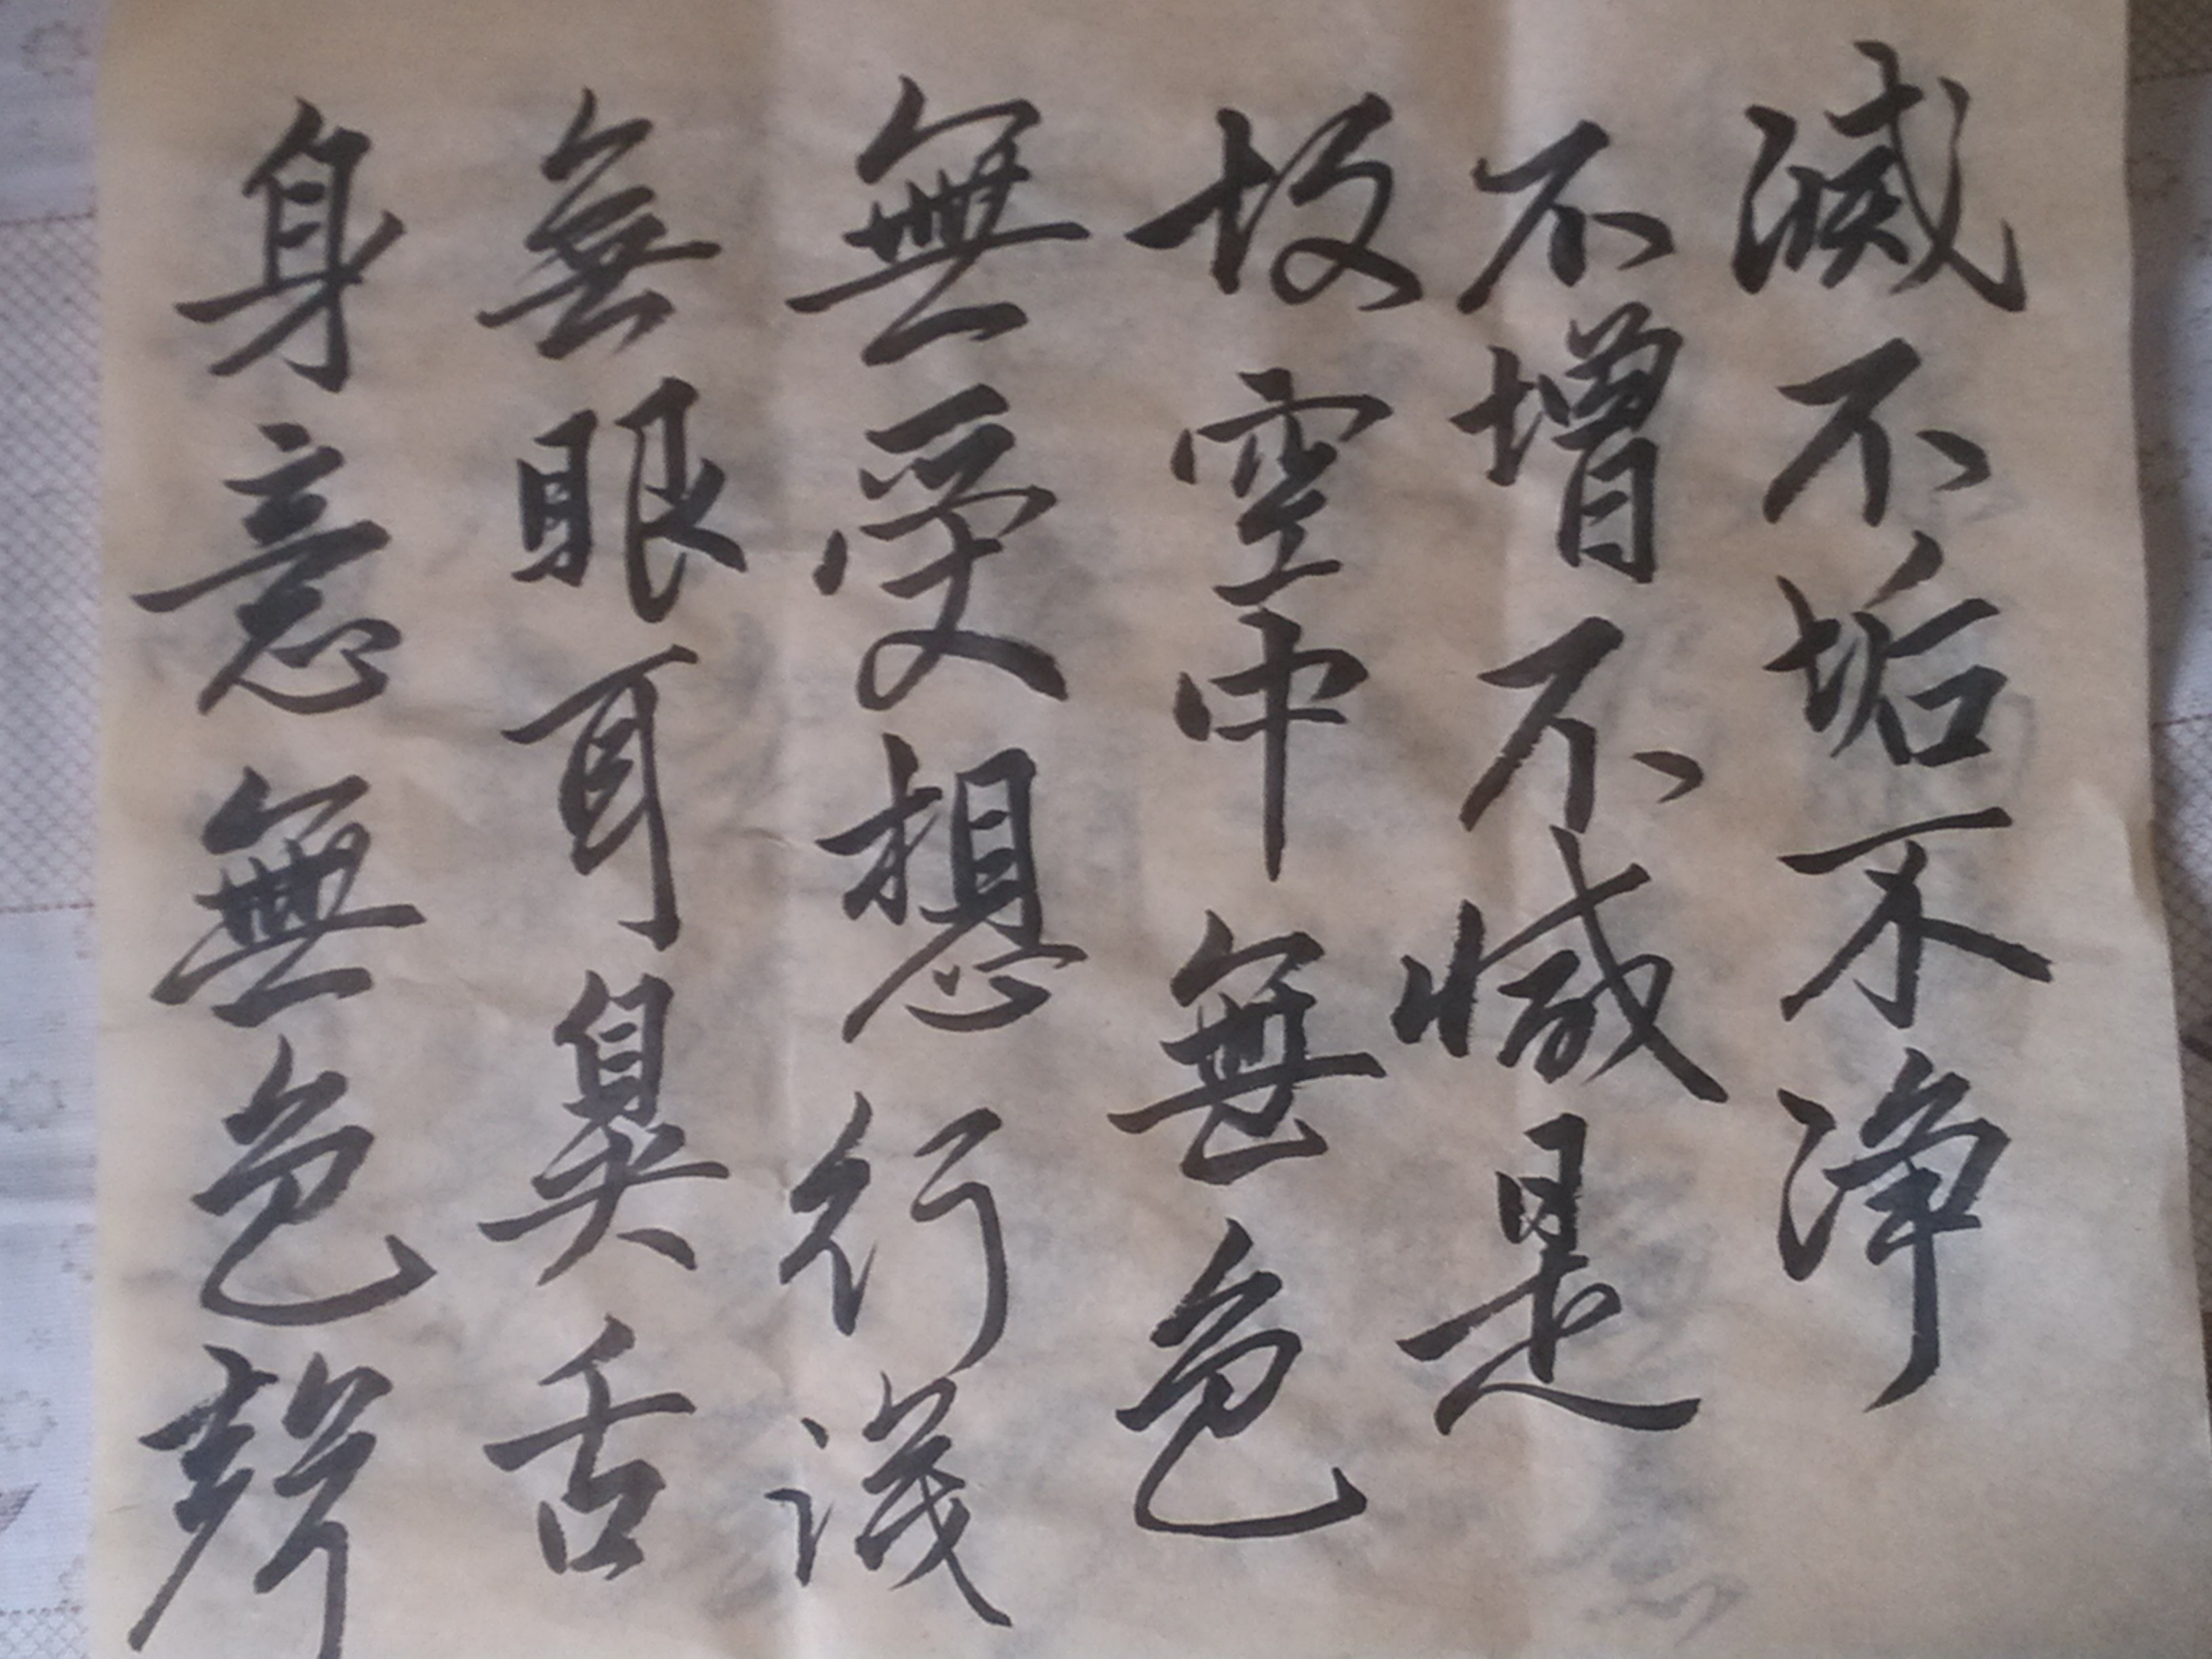 滅不垢不净
不增不減是
故空中無色
無受想行識
無眼耳鼻舌
身意無色聲